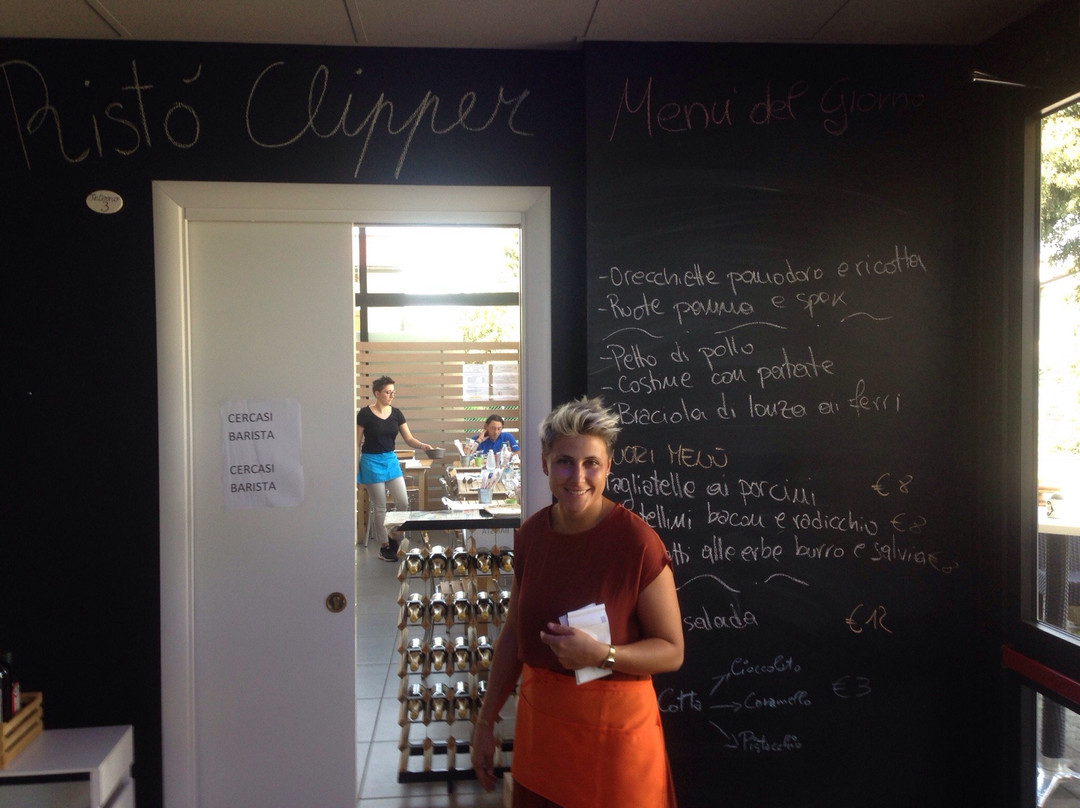 Ristó Clipper
Menù del Giorno
3
CERCASI
BARISTA
CERCASI
BARISTA
-Orecchiette pomodoro e ricotta
-Ruote panna e spek
-Petto di pollo
-Costine con patate
Braciola di lonza ai ferri
UORI MENÙ
tagliatelle ai porcini €8
tellini bacon e radicchio €8
tti alle erbe burro e salvia €8
salada €12
Cotta
Cioccolato
Caramello €3
Pistacchio